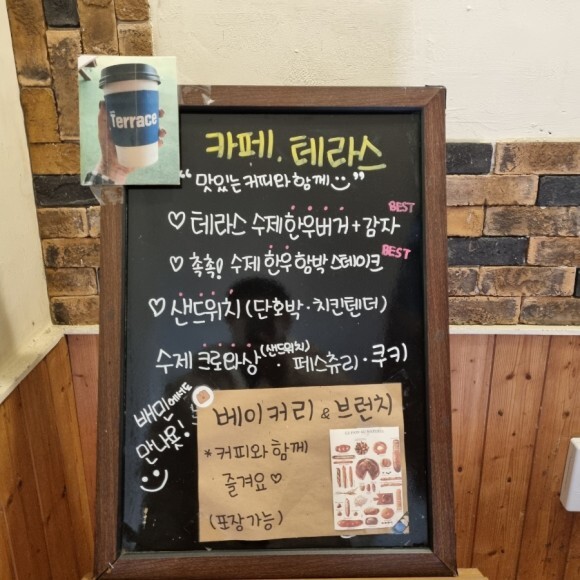 Terrace
카페.테라스
"맛있는 커피와 함께"
♡ 테라스 수제 한우버거 + 감자 BEST
♡ 촉촉! 수제 한우 함박 스테이크 BEST
♡ 샌드위치 (단호박·치킨텐더)
수제 크로와상 (샌드위치) · 페스츄리 · 쿠키
배민에서도
만나욧!
베이커리 & 브런치
*커피와 함께
즐겨요♡
(포장가능)